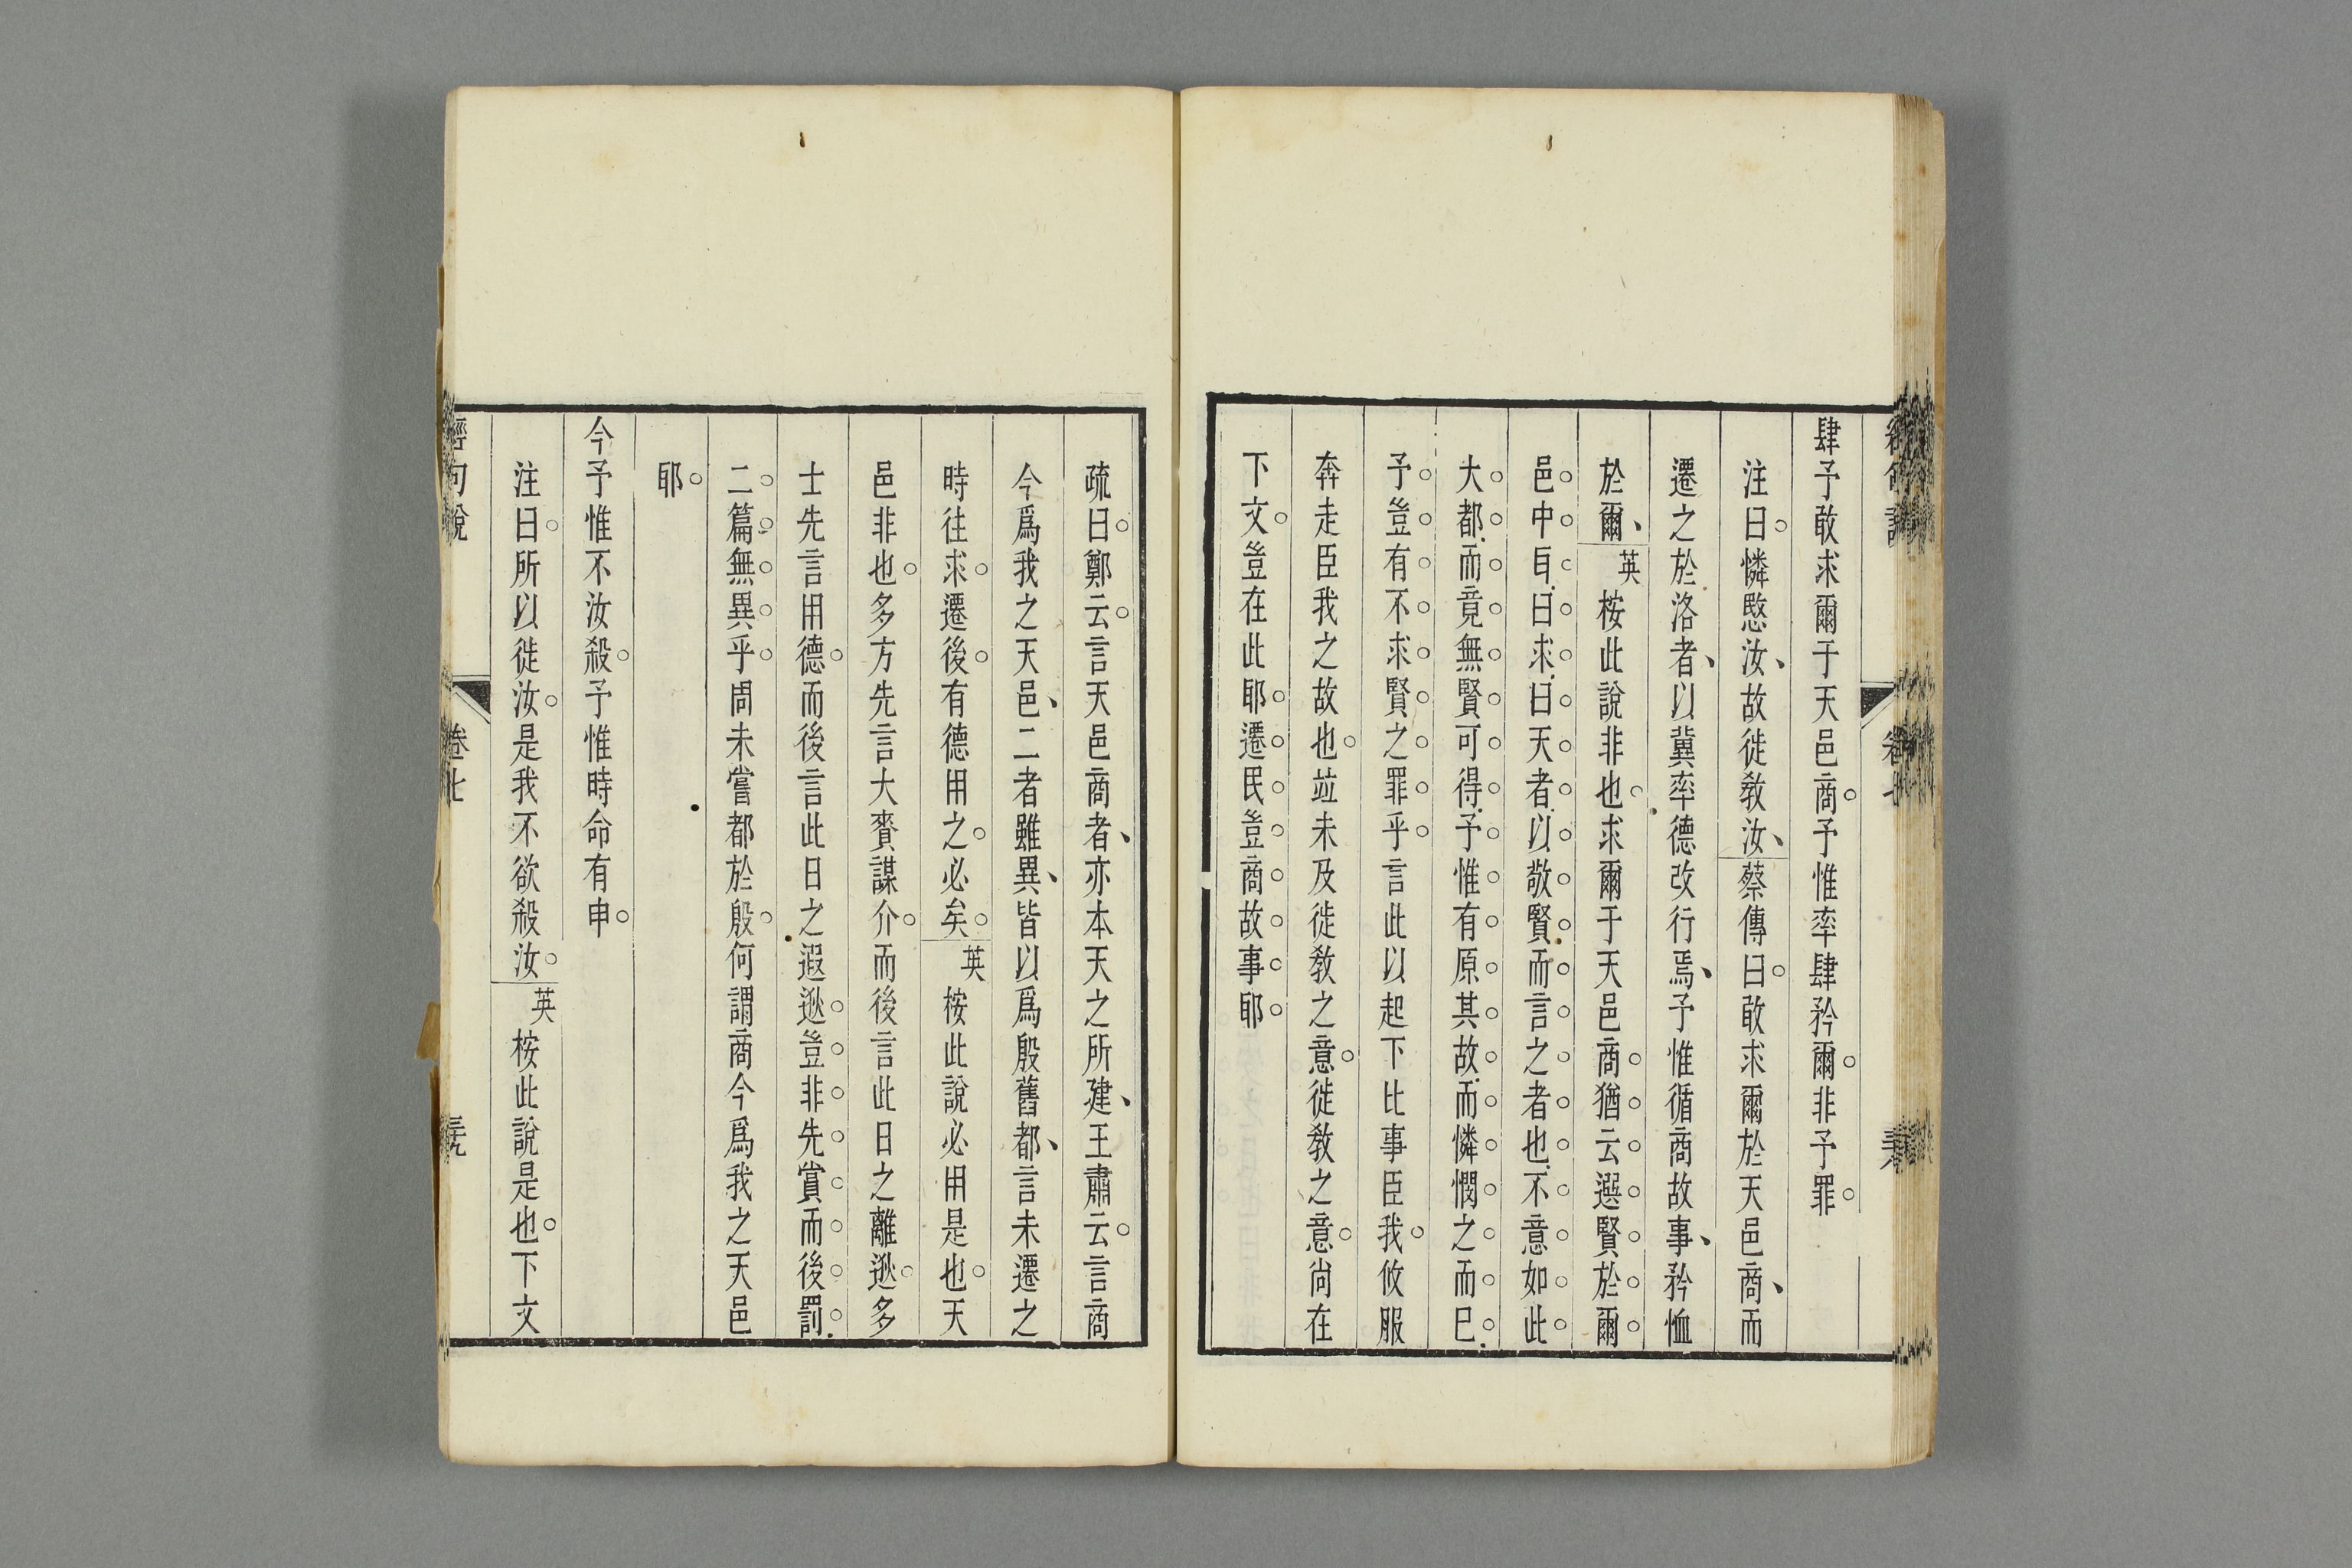 肆予敢求爾于天邑商○予惟率肆矜爾○非予罪○
注曰○憐愍汝、故徙教汝、蔡傳曰○敢求爾於天邑商、而
遷之於洛者、以冀率德改行焉、予惟循商故事、矜恤
於爾、英桉此說非也○求爾于天邑商○猶○云○選○賢○於○爾○
邑○中○耳○曰○求○曰○天○者○以○敬○賢○而○言○之○者○也○不○意○如○此○
大○都○而○竟○無○賢○可○得○予○惟○有○原○其○故○而○憐○憫○之○而○已○
予○豈○有○不○求○賢○之○罪○乎○言此以起下比事臣我○攸服
奔走臣我之故也○竝未及徙教之意○徙教之意○尚在
下文○豈在此耶○遷○民○豈○商○故○事○耶○
卷七
疏曰○鄭云○言天邑商者、亦本天之所建、王肅云○言商
今爲我之天邑、二者雖異、皆以爲殷舊都、言未遷之
時往求○遷後○有德用之○必矣○英桉此說必用是也○天
邑非也○多方先言大賚謀介○而後言此日之離逖○多
士先言用德○而後言此日之遐逖○豈○非○先○賞○而○後○罰○
二○篇○無○異○乎○問未嘗都於殷○何謂商今爲我之天邑
耶○
今予惟不汝殺○予惟時命有申○
注曰○所以徙汝○是我不欲殺汝○英桉此說是也○下文
經句說
卷七